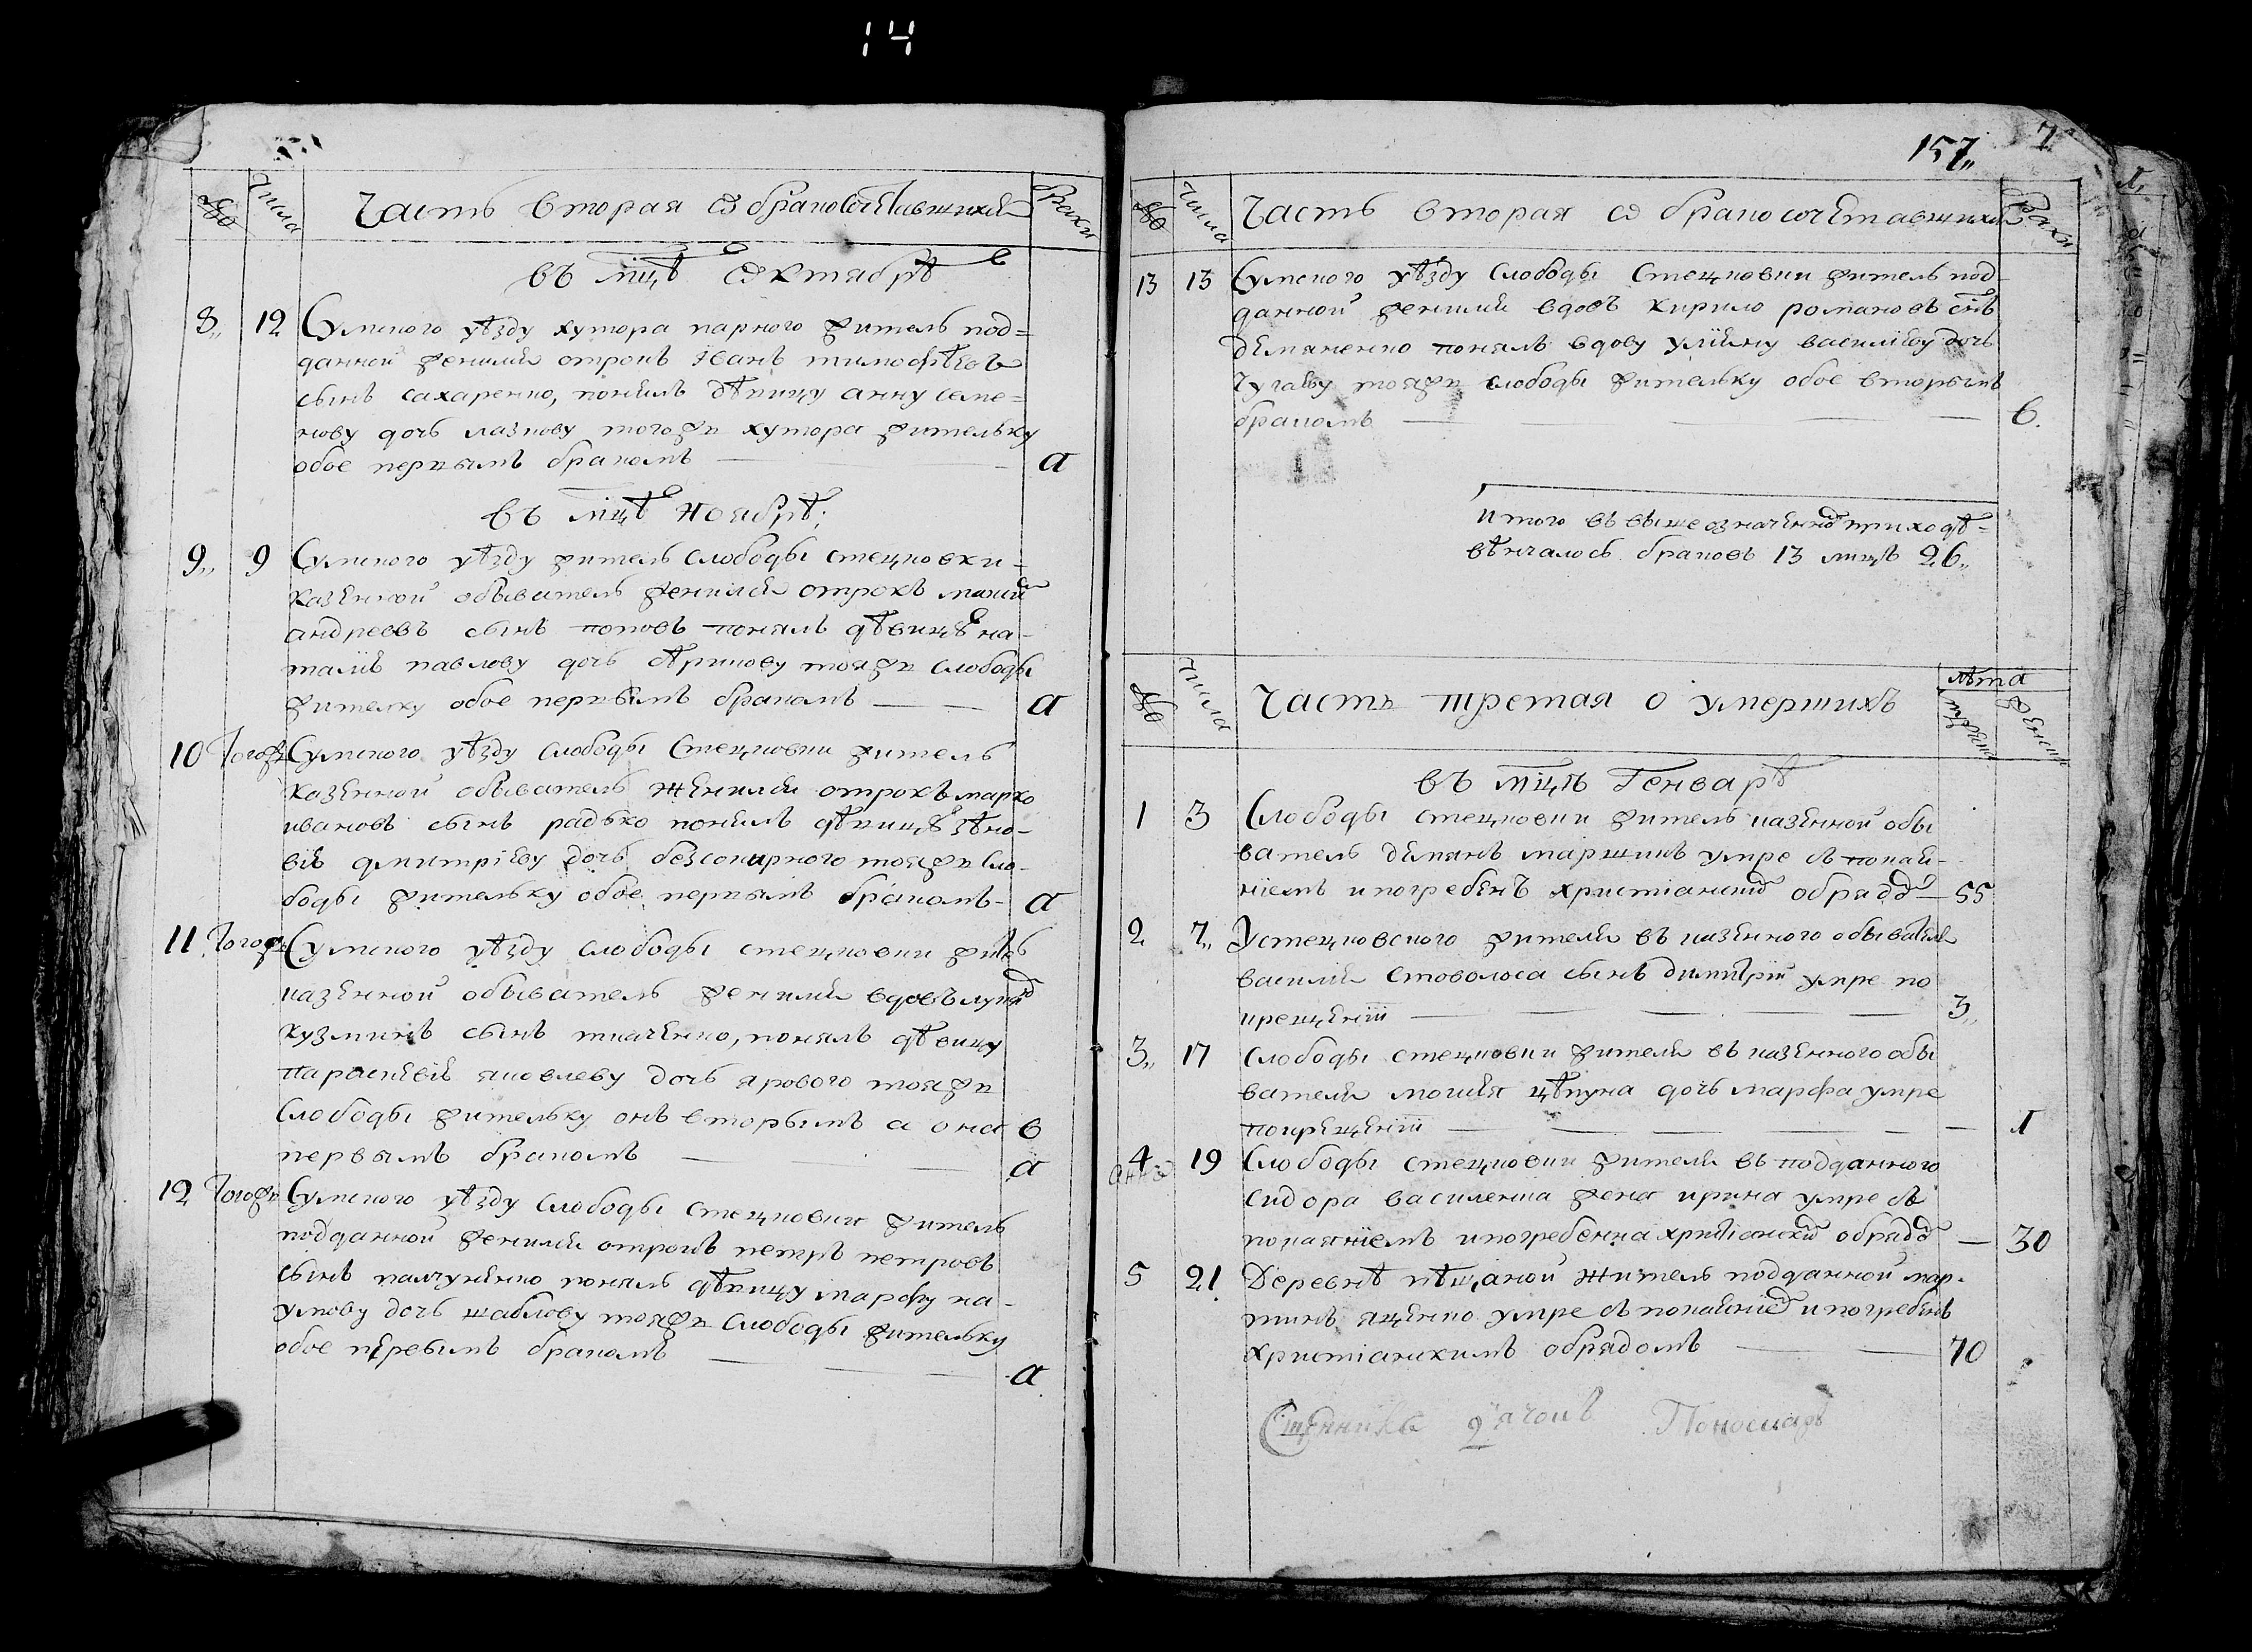 14
№ Числа Часть вторая ѡ бракосочетавшихся Браки
въ мцѣ Ѡктябрѣ
8,, 12 Сумского уѣзду хутора парного житель под=
данной женился отрокъ Іванъ тимофѣевъ
сынъ сахаренко, понялъ дѣвицу анну семе=
нову дочь лазкову тогожъ хутора жительку
обое первымъ бракомъ — а
въ мцѣ Ноябрѣ;
9,, 9 Сумского уѣзду житель слободы стецковки-
казенной обыватель женился отрокъ
андреевъ сынъ поповъ понялъ дѣвицу на-
талію павлову дочь тояжъ слободы
жителку обое первымъ бракомъ — а
10 Тогожъ Сумского уѣзду слободы Стецковки житель
казенной обыватель женился отрокъ марко
ивановъ сынъ радько понялъ дѣвицу зѣно-
вію дмитріеву дочь безсокирного тояжъ сло-
боды жительку обое первымъ бракомъ- а
11 Тогожъ Сумского уѣзду слободы стецковки житель
казенной обыватель женился вдовъ
кузминъ сынъ ткаченко, понялъ дѣвицу
параскевію яковлеву дочь ярового тояжъ
Слободы жительку онъ вторымъ а она в
первымъ бракомъ — а
12 Тогожъ Сумского уѣзду слободы стецковки житель
подданной женился отрокъ петръ петровъ
сынъ понялъ дѣвицу марфу на-
умову дочь шаблову тояжъ Слободы жительку
обое первымъ бракомъ — а
157,, 7
№ Числа Часть вторая ѡ бракосочетавшихся Браки
13 13 Сумского уѣзду Слободы Стецковки житель под-
данной женился вдовъ Кирило романовъ снъ
демяненко понялъ вдову уліяну василіеву дочь
Чугаеву тояжъ слободы жительку обое вторымъ
бракомъ — в.
Итого въ вышеозначенномъ приходѣ-
вѣнчалось браковъ 13 лицъ 26,,
№ Числа Часть третая о умершихъ лѣта мужеска женска
въ мцѣ Генварѣ
1 3 Слободы стецковки житель казенной обы
ватель демянъ марщикъ умре съ покая-
ніемъ и погребенъ христіанскимъ обрядом — 55
2 7,, У стецковского жителя въ казенного обывателя
василія стоволоса сынъ димитрій умре по
крещеніи — 3,,
3,, 17 слободы стецковки жителя въ казенного обы
вателя цѣпуна дочь марфа умре
по крещеніи — 1
4 19 Слободы стецковки жителя въ подданного
сидора василенка жена ирина умре съ
покаяніемъ и погребенна христіанским обрядом — 30
5 21 Деревнѣ пѣщаной житель подданной мар-
тинъ яценко умре съ покаяніем и погребенъ
христіанскимъ обрядомъ — 70
Сщенникъ дячокъ Пономарь